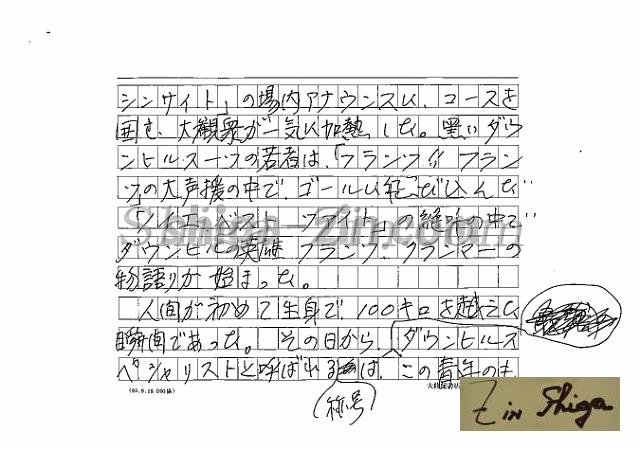 シンサイト」の場内アナウンスに、コースを
囲む、大観衆が一気に加熱した。黒いダウ
ンヒルスーツの若者は、「フランツ!! フラン
ツ」の大声援の中で、ゴールに転び込んだ
「 ファイト」の絶叫の中で
ダウンヒルの英雄 フランツ・クランマーの
物語りが始まった。
人間が初めて生身で、100キロを越えた
瞬間であった。 その日から、ダウンヒルス
ペシャリストと呼ばれる は、この青年のも
(称号)
Shiga-Zin.com
Z in Shiga